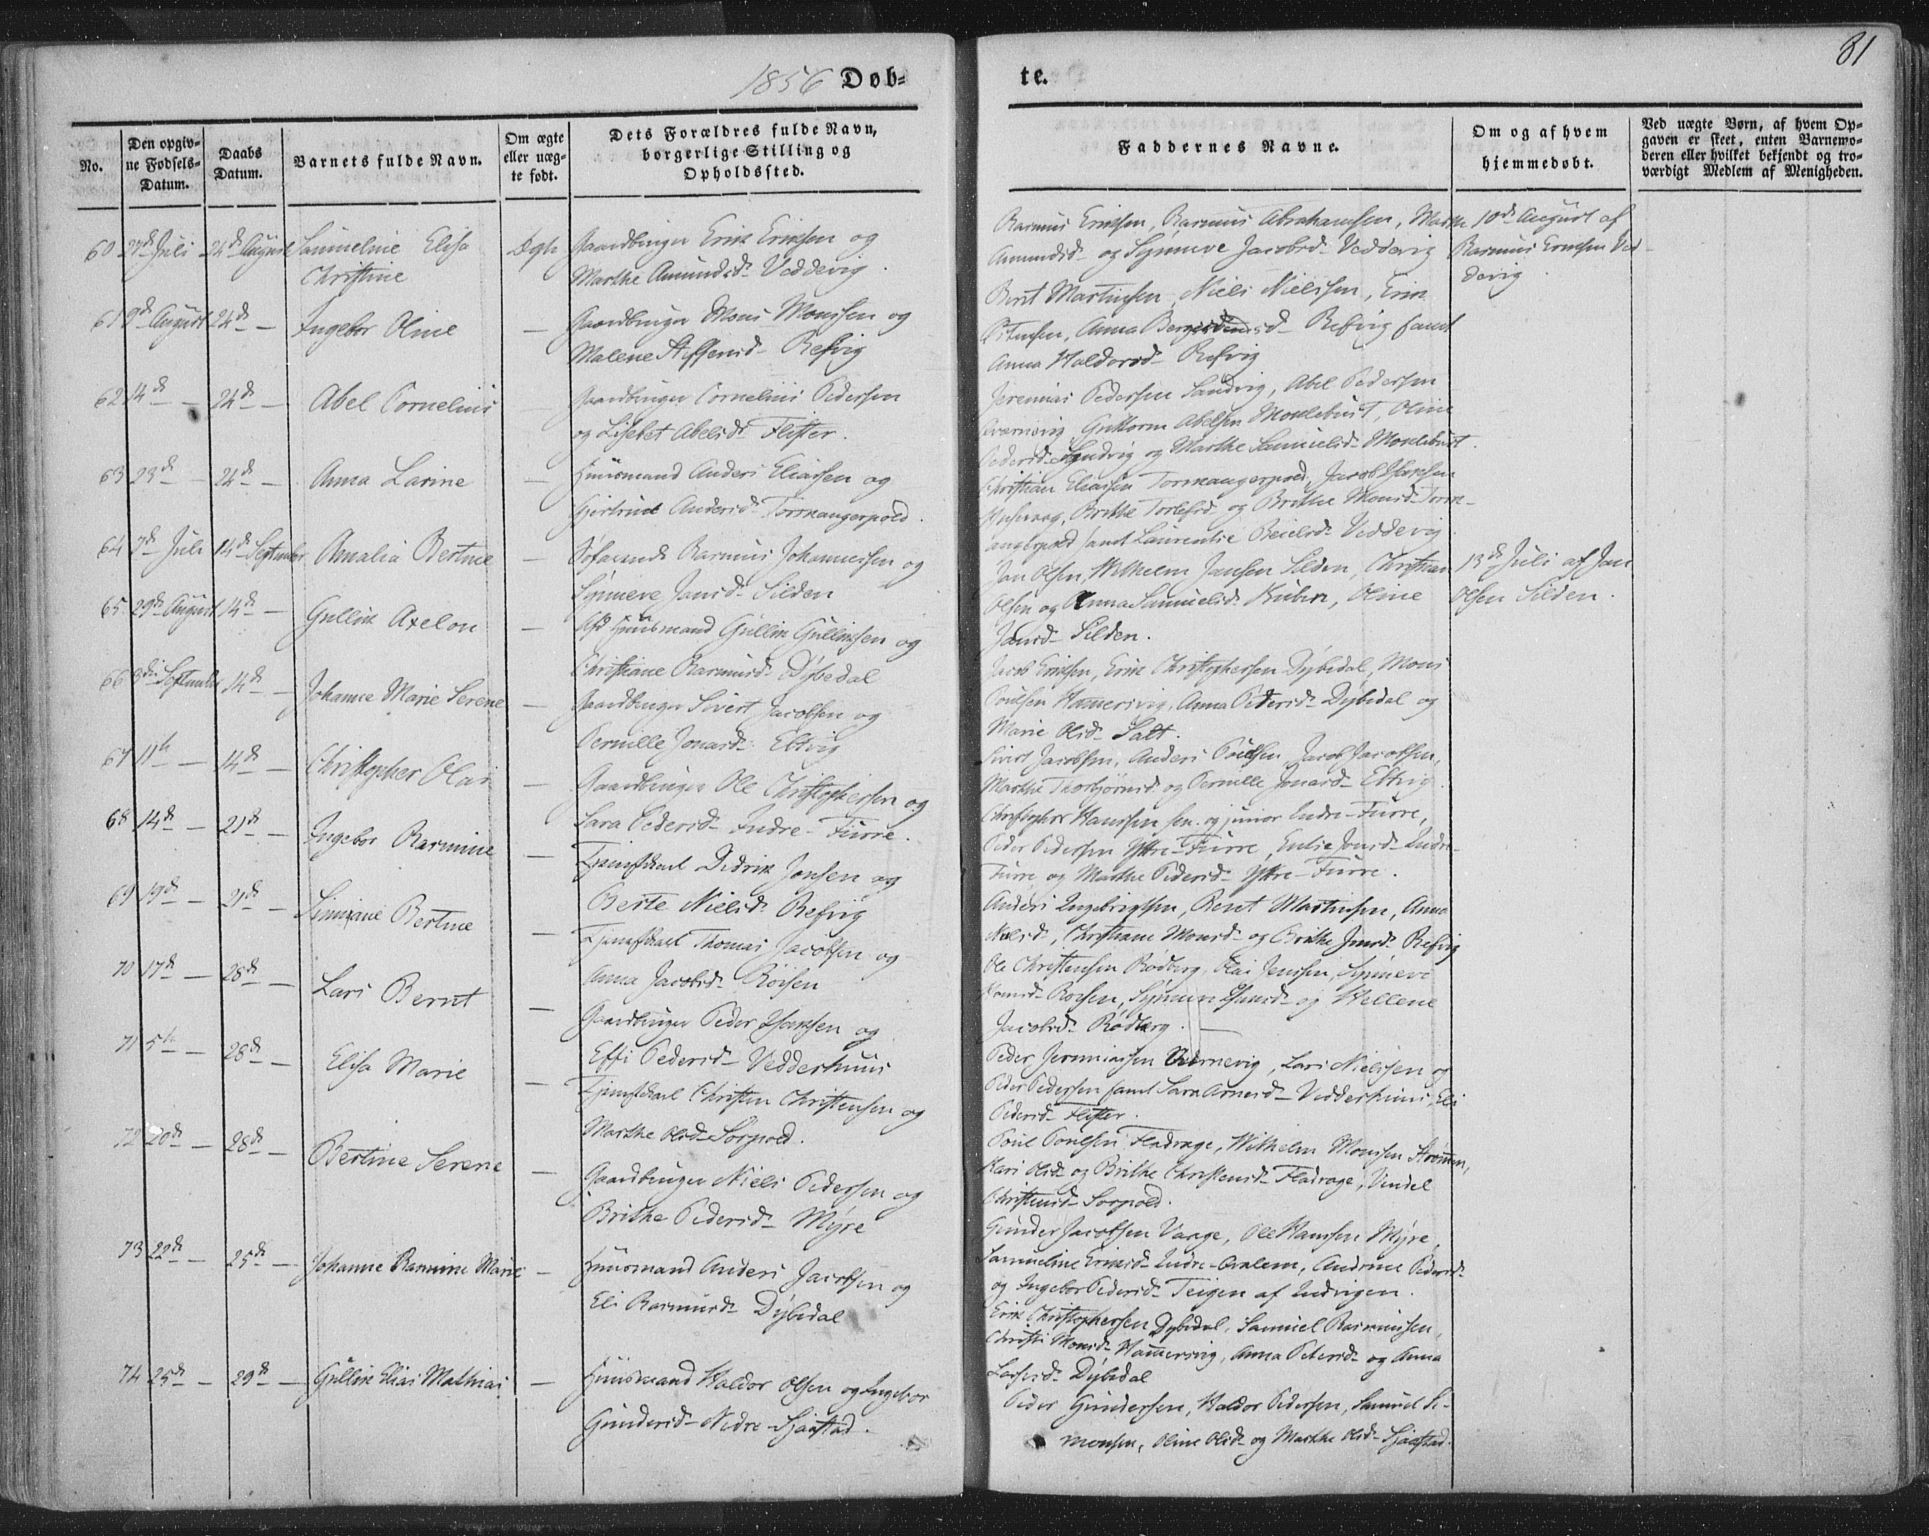 1856 Døb-
te.
81
No.
Den opgiv-
ne Fødsels-
Datum.
Daabs
Datum.
Barnets fulde Navn.
Om ægte
eller uæg-
te født.
Dets Forældres fulde Navn,
borgerlige Stilling og
Opholdssted.
Faddernes Navne.
Om og af hvem
hjemmedøbt.
Ved uægte Børn, af hvem Op-
gaven er skeet, enten Barnemo-
deren eller hvilket bekjendt og tro-
værdigt Medlem af Menigheden.
60 27de Juli 24de August Samueline Elisa
Christine
Ægte
Gaardbruger Erik Eriksen og
Marthe Amundsd. Veddevig.
Rasmus Eriksen, Rasmus Abrahamsen, Marthe
Amundsd. og Synneve Jacobsd. Veddevig
10de August af
Rasmus Eriksen Ved-
devig
61 9de August 24de — Ingebor Oline —
Gaardbruger Mons Monsen og
Malene Steffensd. Refvig
Berit Martinsen, Niels Nielssen, Erik
Anna Refvig samt
Anna Haldorsd. Refvig
62 14de — 24de — Abel Cornelius —
Gaardbruger Cornelius Pedersen
og Lisebet Abelsd. Flister.
Jeremias Pedersen Sandvig, Abel Pedersen
Guttorm Abelsen Mouleburst, Oline
Pedersd. Sandvig og Marthe Samuelsd. Mouleburst.
63 23de — 24de — Anna Larine —
Huusmand Anders Eliassen og
Gjertrud Andersd. Tormangerpold.
Christian Eliasen Tormangerpold, Jacob
Brithe og Brithe Monsd. Torm-
angerpold samt Laurentie Veddevig
64 7de Juli 14de September Amalia Bertine —
Rasmus Johannessen og
Synneve Jansd. Silden
Jan Olsen, Wilhelm Jansen Silden, Christian
Olsen og Anna Samuelsd. Oline
Jansd. Silden.
13de Juli af Jan
Olsen Silden.
65 29de August 14de — Gullik Axelon —
Huusmand Gullik Gulliksen og
Christiane Rasmusd. Dybedal
Jacob Eriksen, Erik Christophersen Dybedal, Mons
Poulsen Hamersvig, Anna Pedersd. Dybedal og
Marie Olsd. Salt.
66 September 14de — Johanne Marie Serene —
Gaardbruger Sivert Jacobsen og
Pernille Jonasd. Eltvig
Sivert Jacobsen, Anders Poulsen, Jacob Jacobsen,
Marthe Thorbjørnsd. og Pernille Jonasd. Eltvig.
67 11te — 14de — Christopher Olai —
Gaardbruger Ole Christophersen og
Sara Pedersd. Indre-Furre.
Christopher Hanssen sen. og junior Indre-Furre,
Peder Pedersen Yttre-Furre, Jonsd. Indre-
Furre og Marthe Pedersd. Yttre-Furre.
68 14de — 21de — Ingebor Rasmine —
Tjenestkarl Didrik Jonsen og
Berte Nielsd. Refvig
Anders Ingebrigtsen, Berit Martinsen, Anna
Nielsd., Christiane Monsd. og Brithe Jonsd. Refvig
69 19de — 21de — Simiane Bertine —
Tjenestkarl Thomas Jacobsen og
Anna Jacobsd. Røisen
Ole Christensen Rødberg, Olai Jenssen, Synneve
og Hellene
Jacobsd. Rødberg.
70 17de — 28de — Lars Bernt —
Gaardbruger Peder og
Effi Pedersd. Vedderhuus
Peder Jeremiassen, Lars Nielssen og
Peder Pedersen samt Sara Arnesd. Vedderhuus, Eli
Pedersd. Flister.
71 5te — 28de — Elisa Marie —
Tjenestkarl Christen Christensen og
Marthe Olsd. Sorpold.
Poul Poulsen Fladrage, Wilhelm Monsen Strømen,
Kari Olsd. og Brithe Christensd. Fladrage, Vendel
Christensd. Sorpold.
72 20de — 28de — Bertine Serene —
Gaardbruger Niels Pedersen og
Brithe Pedersd. Myre
Gunder Jacobsen Vaage, Ole Hanssen Myre,
Samueline Eriksd. Indre-Aralem, Andrine Pedersd.
og Ingebor Pedersd. Teigen af
73 22de — 25de — Johanne Rasmine Marie —
Huusmand Anders Jacobsen og
Eli Rasmusd. Dybedal
Erik Christophersen Dybedal, Samuel Rasmussen,
Christi Monsd. Hamersvig, Anna Petersd. og Anna
Larsesd. Dybedal
74 25de — 29de — Gullik Elias Mathias —
Huusmand Haldor Olsen og Ingebor
Gundersd. Nedre-Sjaastad.
Peder Gundersen, Haldor Pedersen, Samuel Si-
monsen, Oline Olsd. og Marthe Olsd. Sjaastad.